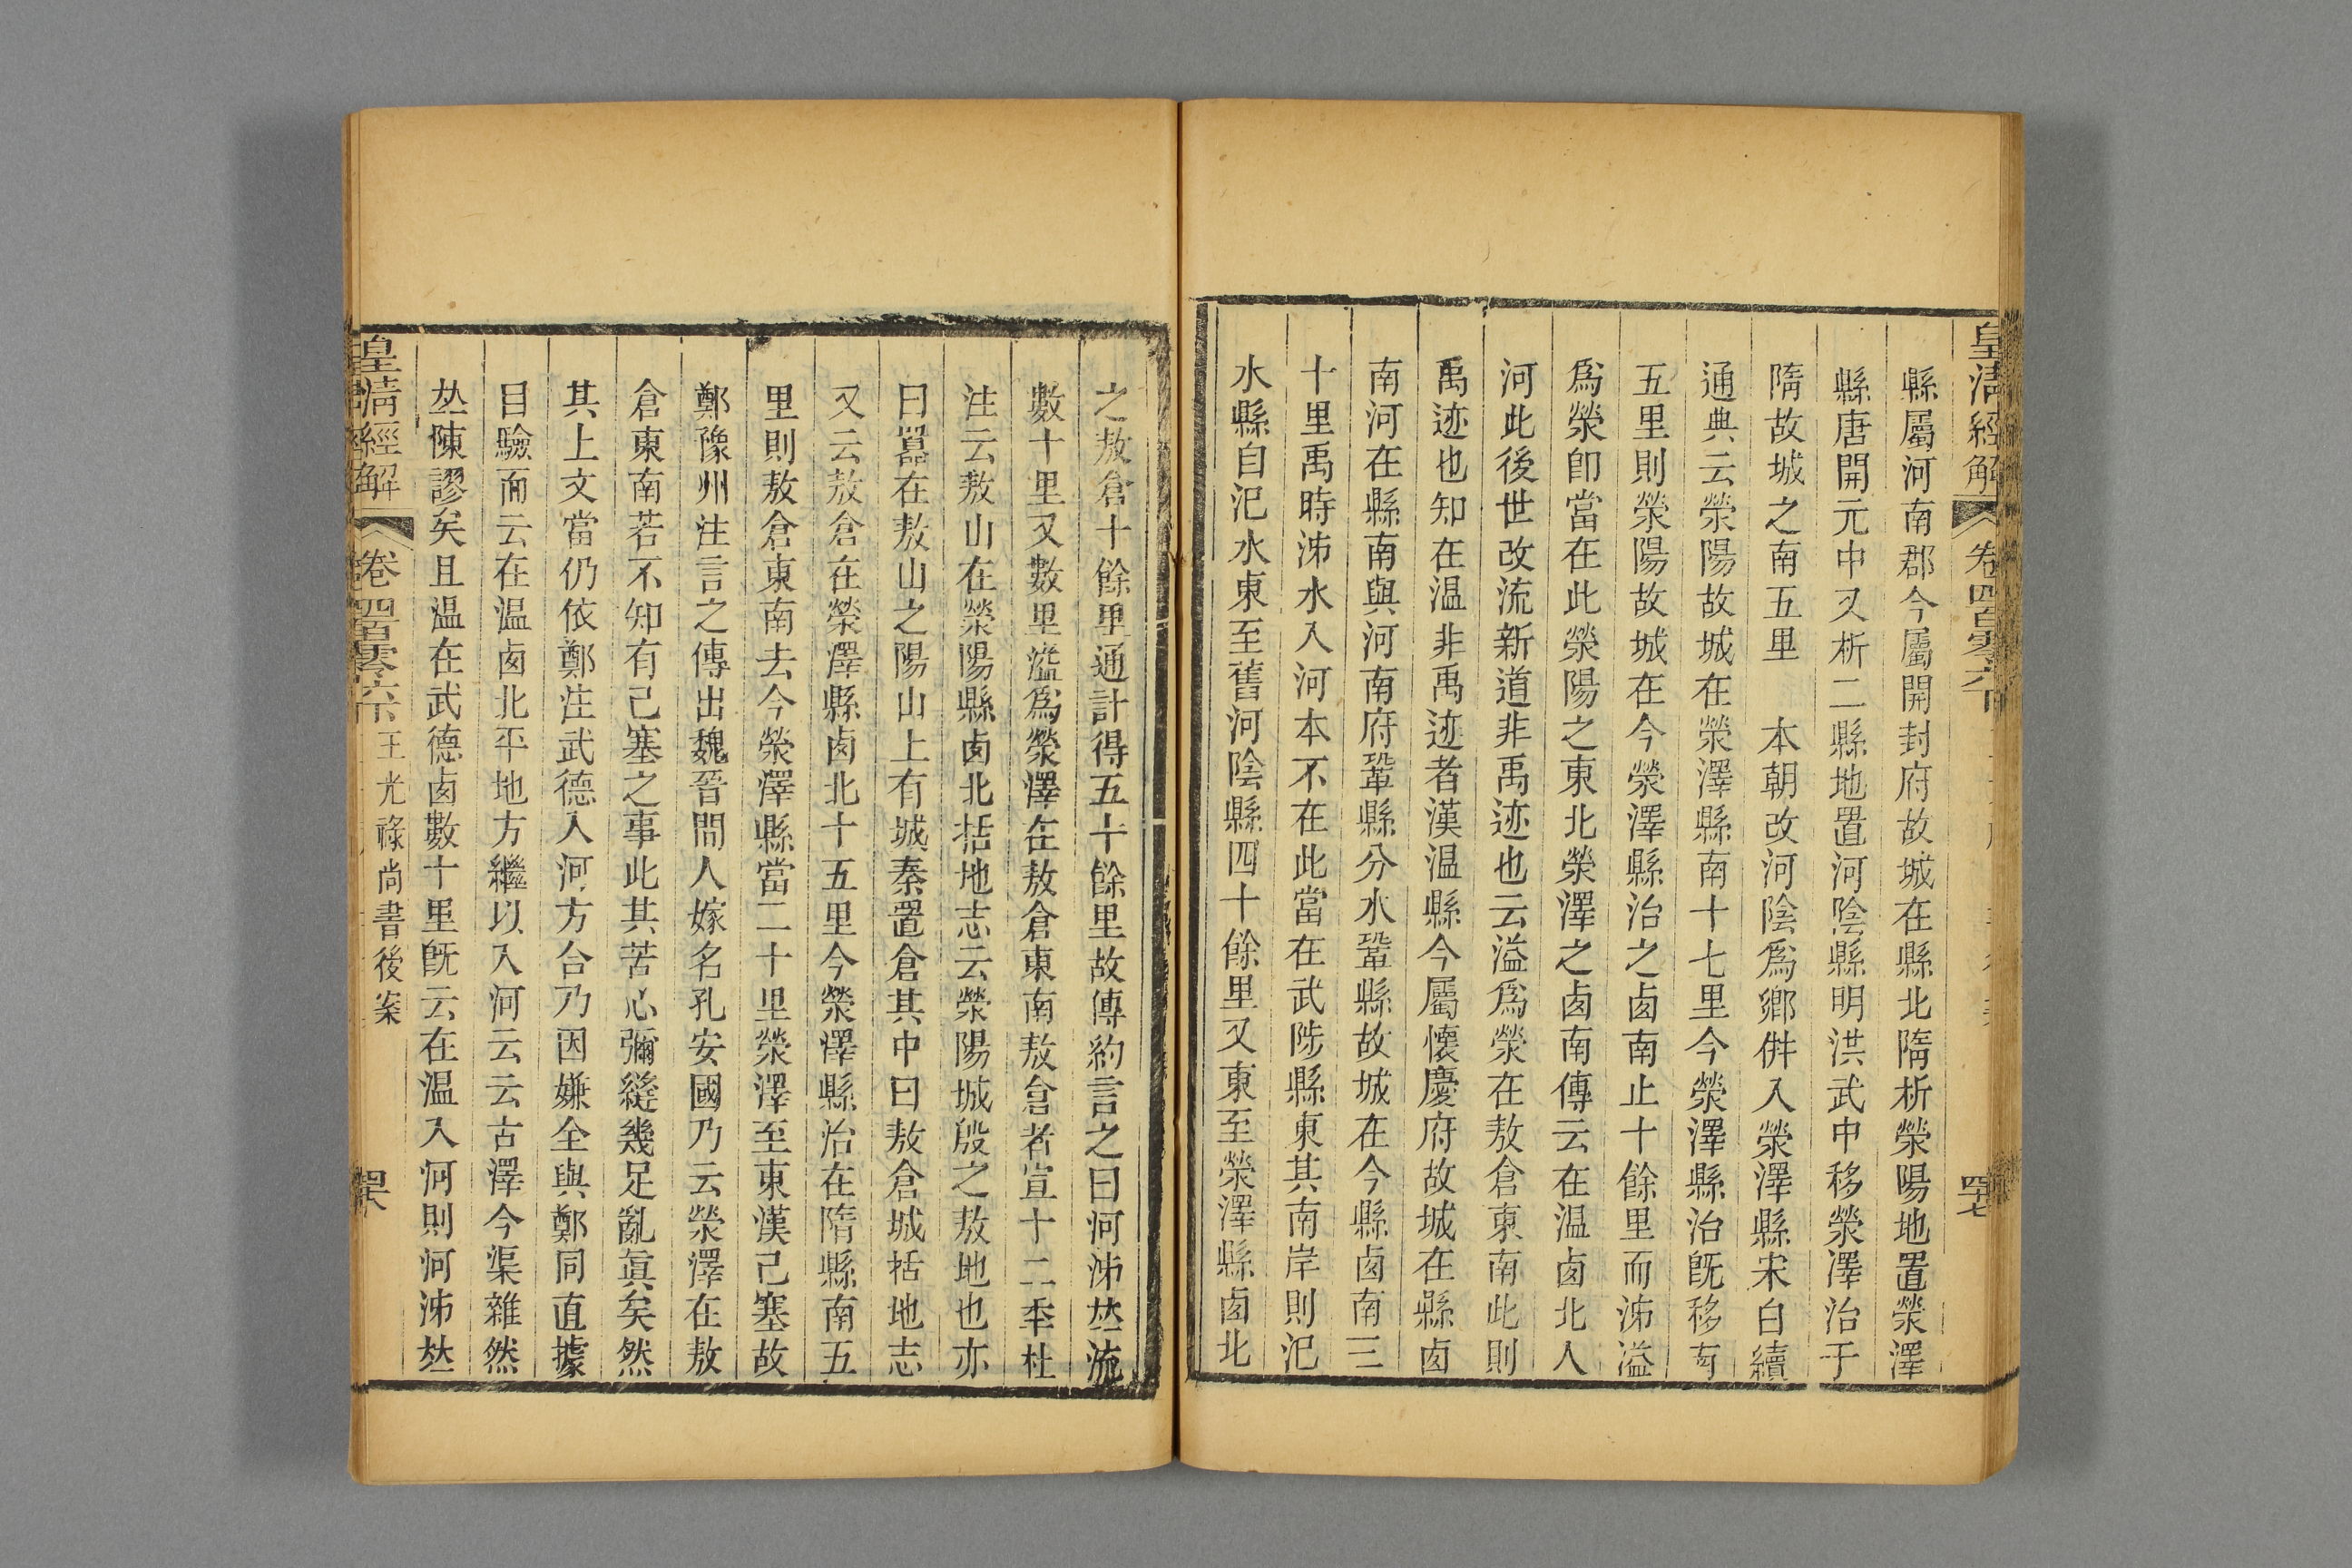 皇清經解 卷四百零六下 四七
縣屬河南郡今屬開封府故城在縣北隋析滎陽地置滎澤
縣唐開元中又析二縣地置河陰縣明洪武中移滎澤治于
隋故城之南五里 本朝改河陰爲鄉倂入滎澤縣宋白續
通典云滎陽故城在滎澤縣南十七里今滎澤縣治旣移有
五里則滎陽故城在今滎澤縣治之卤南止十餘里而泲溢
爲滎卽當在此滎陽之東北滎澤之卤南傳云在温卤北人
河此後世改流新道非禹迹也云溢爲滎在敖倉東南此則
禹迹也知在温非禹迹者漢温縣今屬懷慶府故城在縣卤
南河在縣南與河南府鞏縣分水鞏縣故城在今縣卤南三
十里禹時泲水入河本不在此當在武陟縣東其南岸則汜
水縣自汜水東至舊河陰縣四十餘里又東至滎澤縣卤北
之敖倉十餘里通計得五十餘里故傳約言之曰河泲竝流
數十里又數里溢爲滎澤在敖倉東南敖倉者宣十二秊杜
注云敖山在滎陽縣卤北括地志云滎陽城殷之敖地也亦
曰囂在敖山之陽山上有城秦置倉其中曰敖倉城括地志
又云敖倉在滎澤縣卤北十五里今滎澤縣治在隋縣南五
里則敖倉東南去今滎澤縣當二十里滎澤至東漢己塞故
鄭豫州注言之傳出魏晉間人嫁名孔安國乃云滎澤在敖
倉東南若不知有己塞之事此其苦心彌縫幾足亂眞矣然
其上文當仍依鄭注武德入河方合乃因嫌全與鄭同直據
目驗而云在温卤北平地方繼以入河云云古澤今渠雜然
竝陳謬矣且温在武德卤數十里旣云在温入河則河泲竝
皇清經解 卷四百零六下 王光祿尚書後案 四六